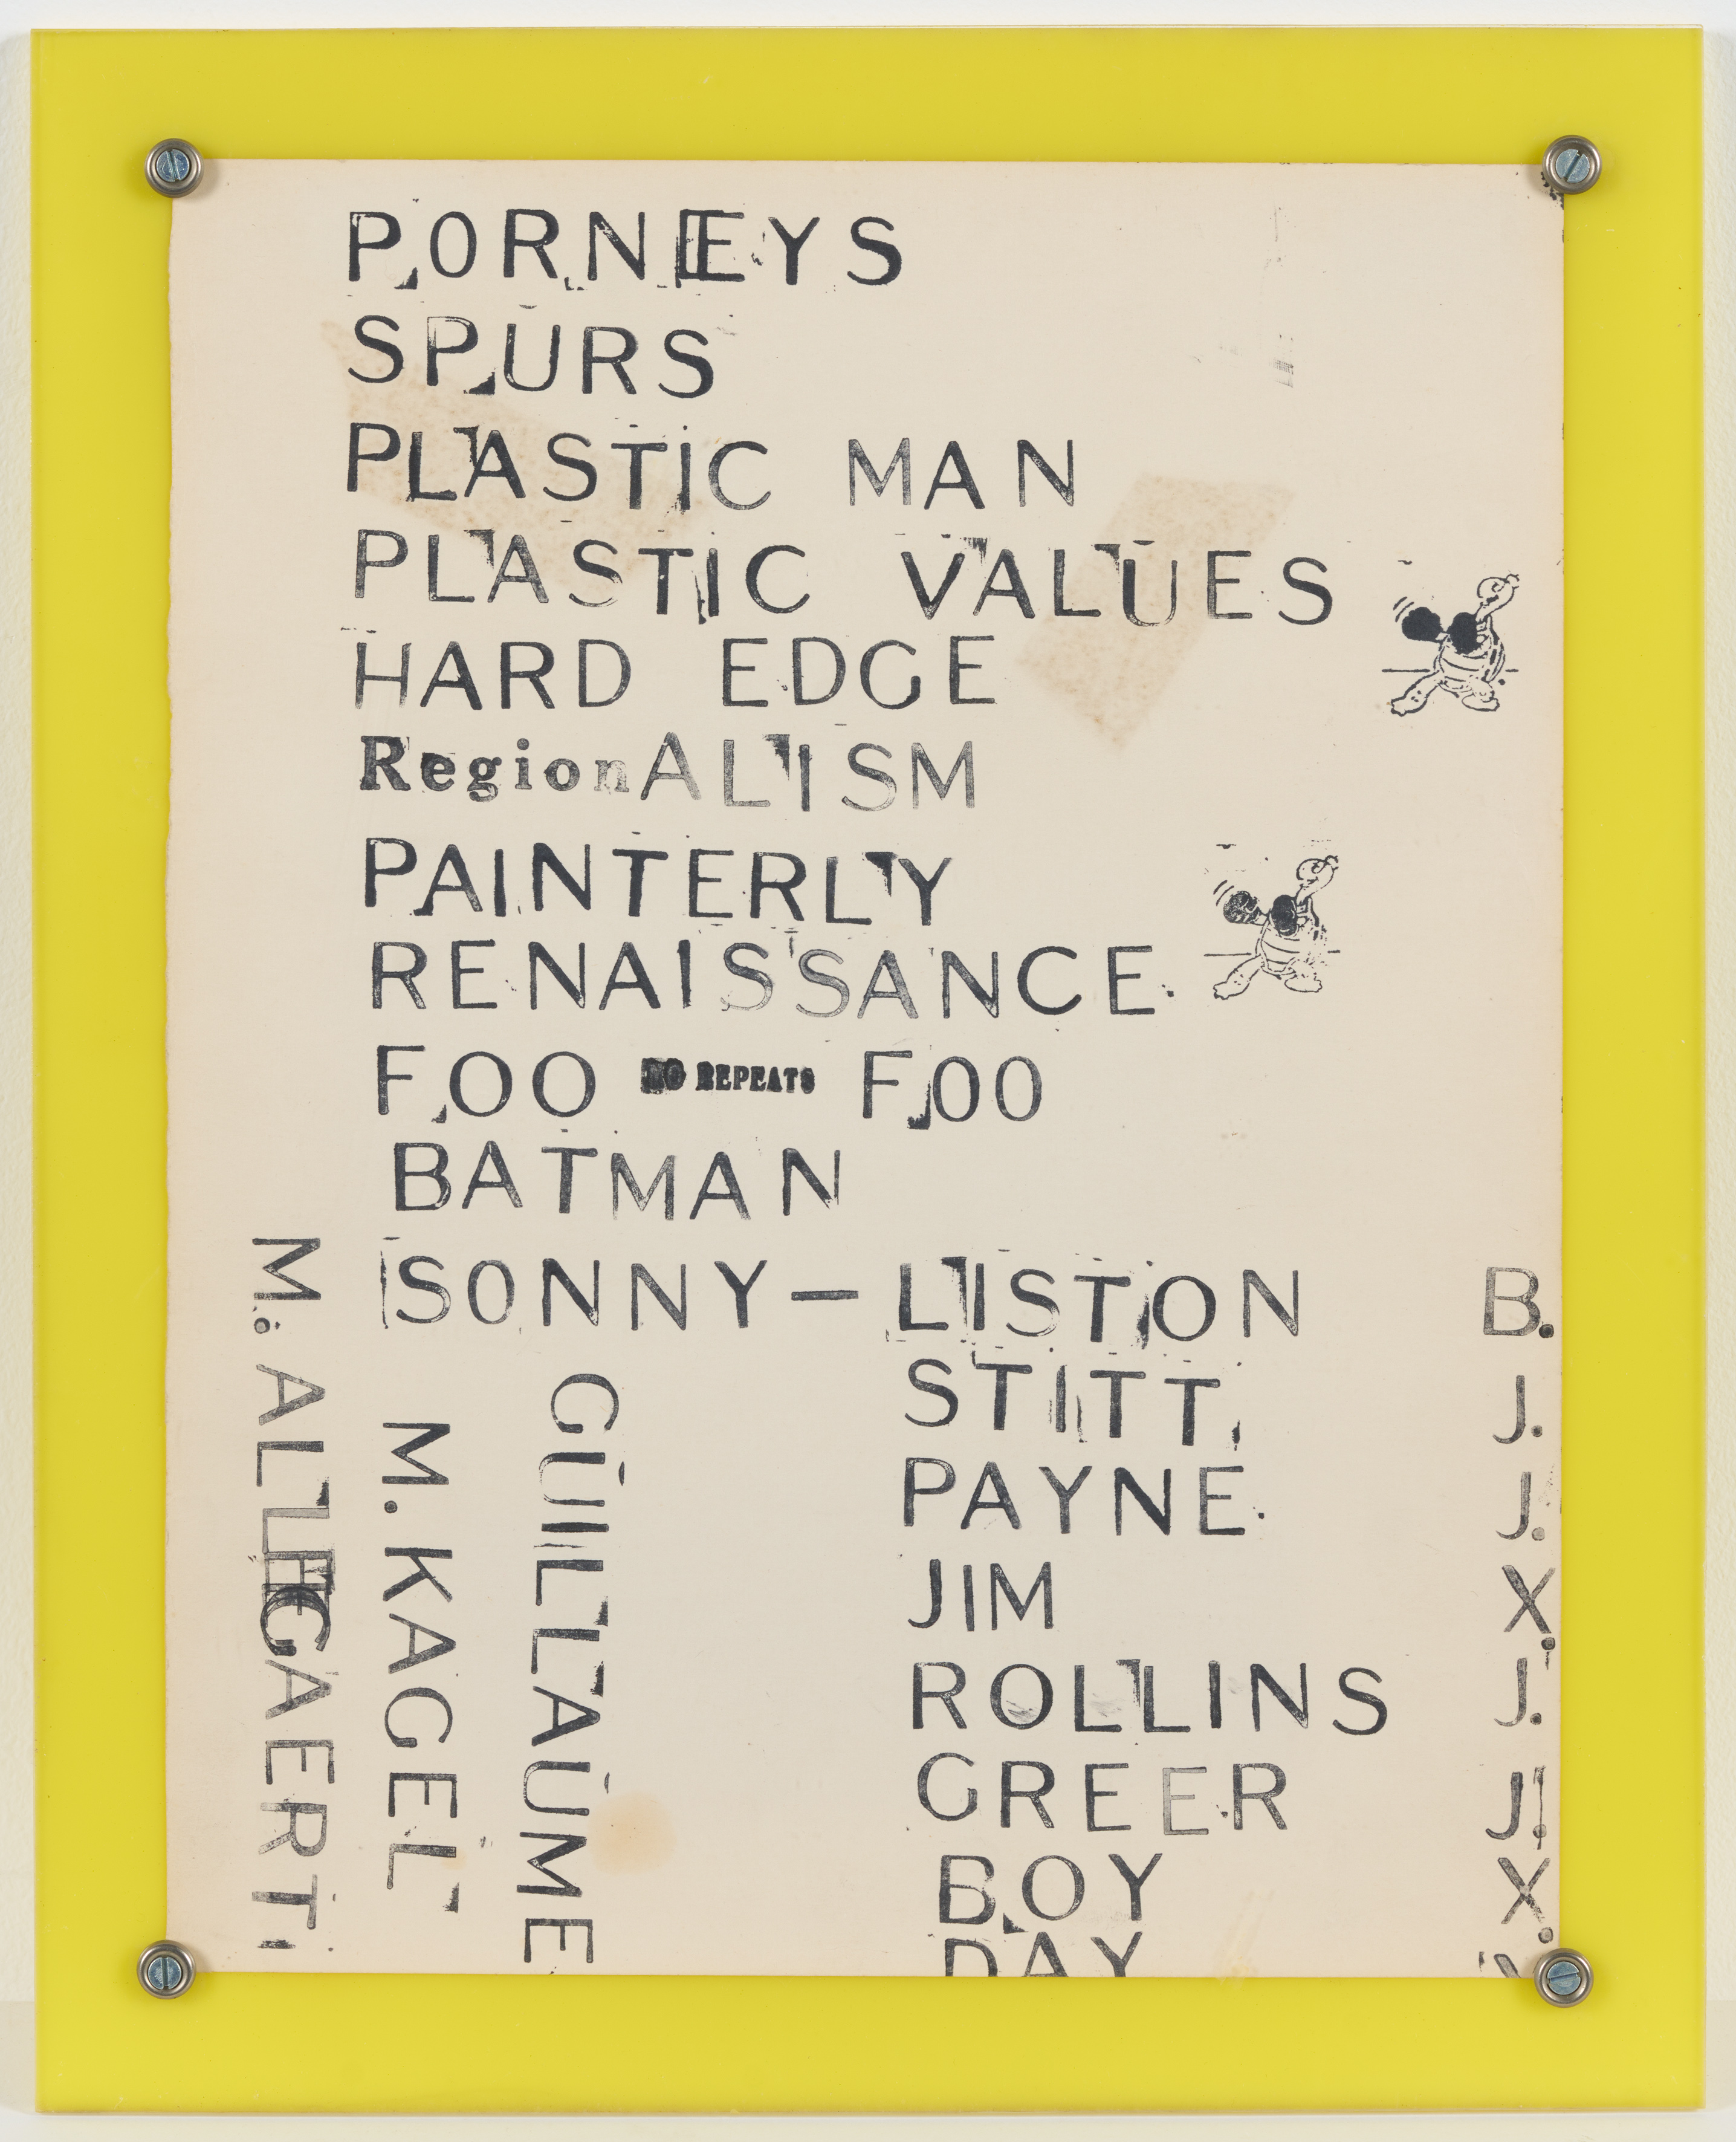 PORNEYS
SPURS
PLASTIC MAN
PLASTIC VALUES
HARD EDGE
RegionALISM
PAINTERLY
RENAISSANCE
FOO NO REPEATS FOO
BATMAN
SONNY — LISTON B.
STITT J.
PAYNE J.
JIM X.
ROLLINS J.
GREER J.
BOY X.
DAY
M. KAGEL
GUILLAUME